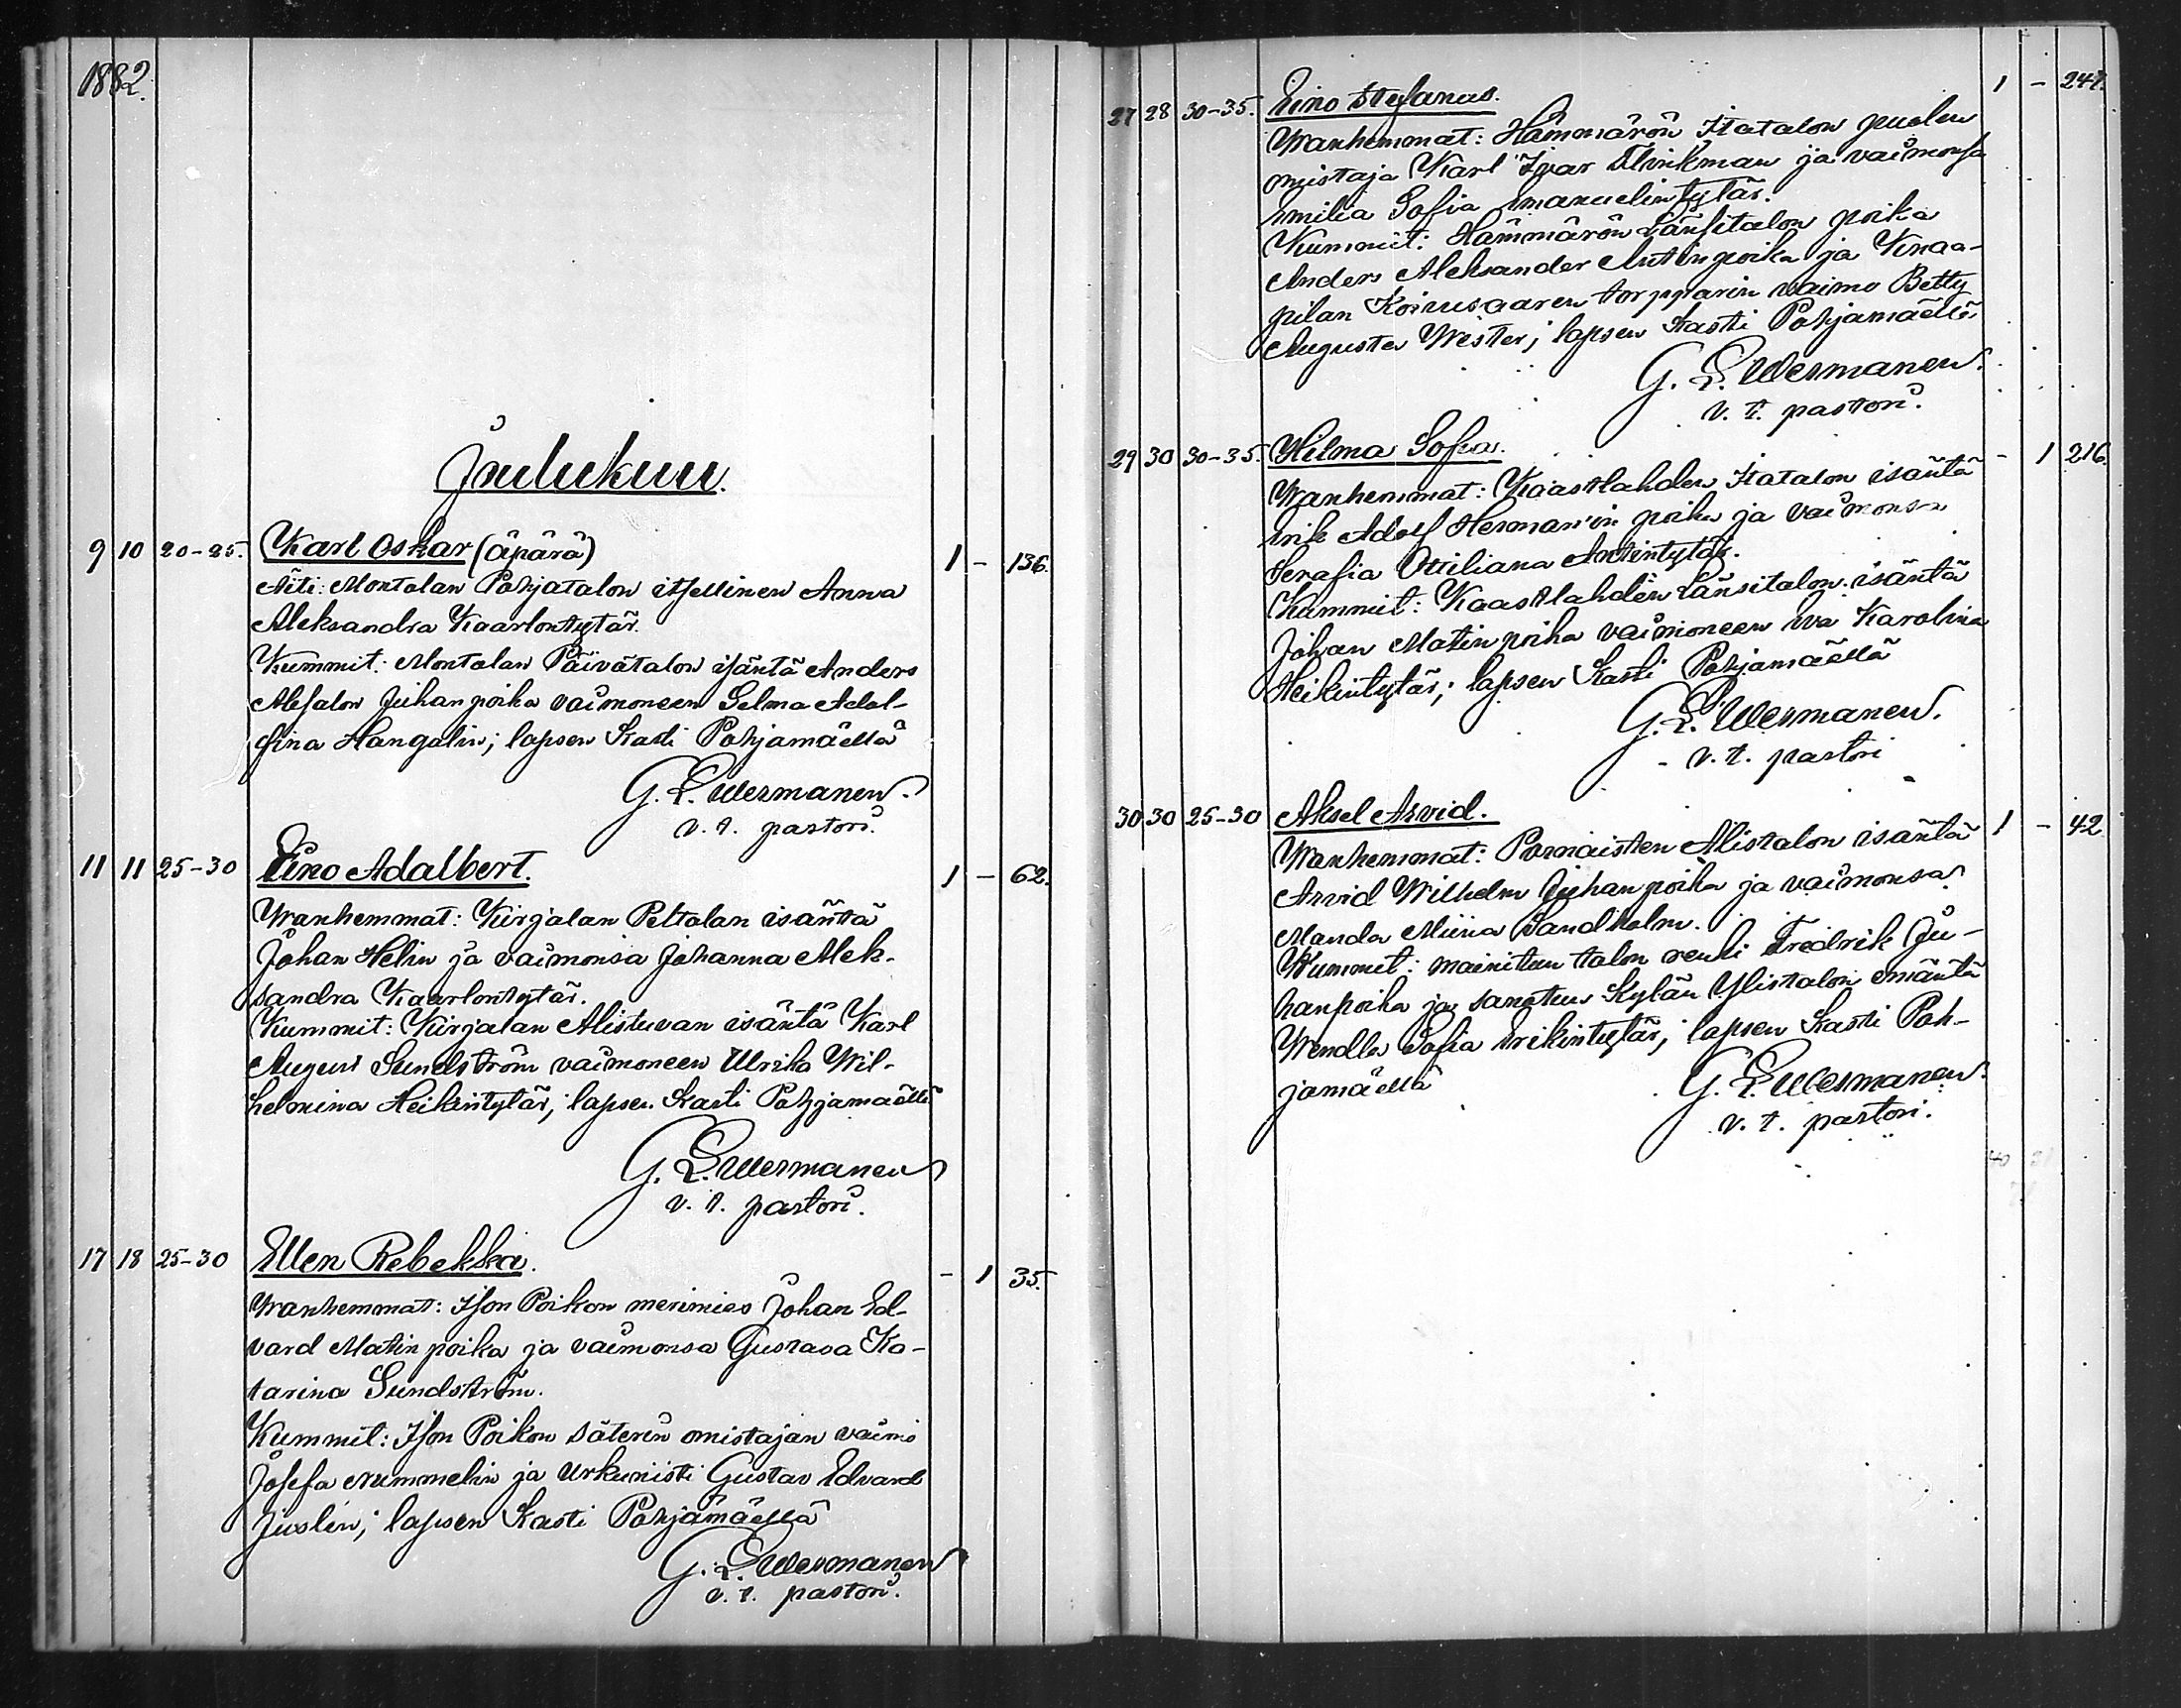 1882.
Joulukuu.
9 10 20-25. Karl Oskar (äpärä) 1 - 136.
Äiti: Montolan Pohjatalon itsellinen Anna
Aleksandra Kaarlontytär.
Kummit: Montolan Päivätalon isäntä Anders
Absalon Juhanpoika vaimoneen Selma Adol-
fina Hangelin; lapsen kasti Pohjamäellä
G. L. Wermanen.
v. t. pastori.
11 11 25-30 Eino Adalbert. 1 - 62.
Wanhemmat: Kirjalan Peltolan isäntä
Johan Helin ja vaimonsa Johanna Alek-
sandra Kaarlontytär.
Kummit: Kirjalan Alistuvan isäntä Karl
August Sundström vaimoneen Ulrika Wil-
helmina Heikintytär; lapsen kasti Pohjamäellä
G. L. Wermanen
v. t. pastori.
17 18 25-30 Ellen Rebekka. - 1 35.
Wanhemmat: Ison Poikon merimies Johan Ed-
vard Matinpoika ja vaimonsa Gustava Ka-
tarina Sundström.
Kummit: Ison Poikon säterin omistajan vaimo
Josefa Nummelin ja Urkunisti Gustav Edvard
Juslin; lapsen kasti Pohjamäellä
G. L. Wermanen
v. t. pastori.
27 28 30-35. Eino Stefanus. 1 - 247.
Wanhemmat: Hämmärön Itätalon puolen
omistaja Karl Ivar Flinkman ja vaimonsa
Emilia Sofia Emanuelintytär.
Kummit: Hämmärön Länsitalon poika
Anders Aleksander Antinpoika ja Knaa-
pilan Koivusaaren torpparin vaimo Betty
Augusta Wester; lapsen kasti Pohjamäellä
G. L. Wermanen.
v. t. pastori.
29 30 30-35. Hilma Sofia. - 1 216.
Wanhemmat: Kaastlahden Itätalon isäntä
Erik Adolf Herman'in poika ja vaimonsa
Serafia Ottiliana Antintytär.
Kummit: Kaastlahden Länsitalon isäntä
Johan Matinpoika vaimoneen Eva Karolina
Heikintytär; lapsen kasti Pohjamäellä
G. L. Wermanen.
v. t. pastori
30 30 25-30 Aksel Arvid. 1 - 42
Wanhemmat: Pornaisten Alistalon isäntä
Arvid Wilhelm Juhanpoika ja vaimonsa
Manda Miina Sandholm.
Kummit: mainitun talon renki Fredrik Ju-
hanpoika ja sanotun kylän Ylistalon emäntä
Wendla Sofia Erikintytär; lapsen kasti Poh-
jamäellä
G. L. Wermanen.
v. t. pastori.
40